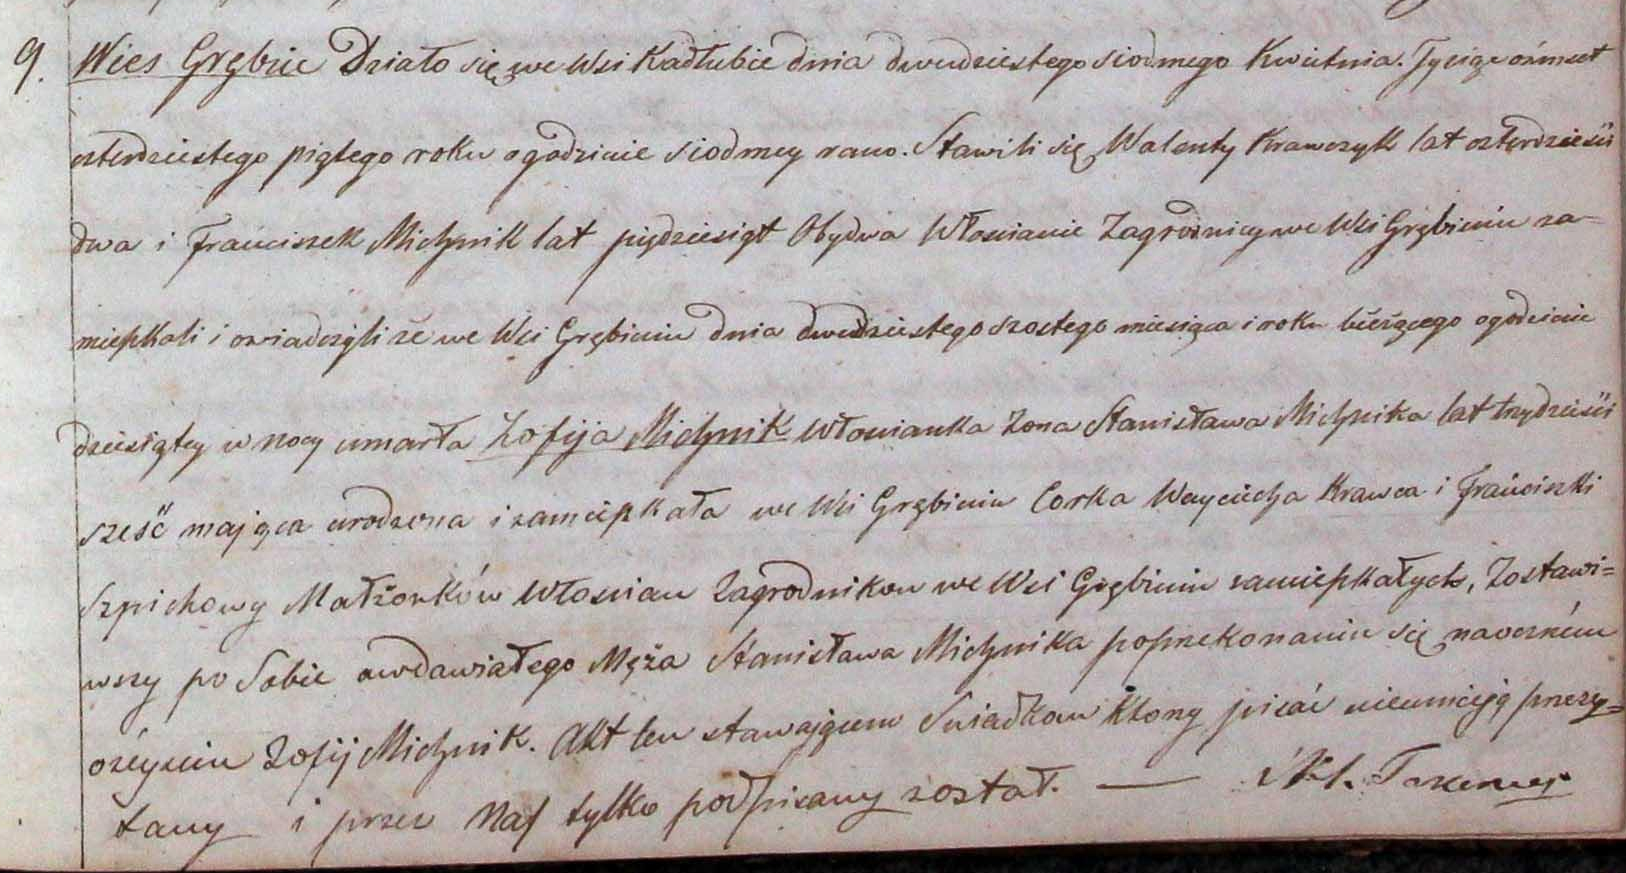 9. Wies Grębin Działo się we Wsi Kadłubie dnia dwudziestego siodmego Kwietnia. Tysiąc ośmset
czterdziestego piątego roku o godzinie siodmey rano. Stawili się Walenty Krawczyk lat czterdzieści
dwa i Franciszek Michnik lat pięćdziesiąt Obydwa Włoscianie Zagrodnicy we Wsi Grębiniu za-
mieszkali i oswiadczyli że we Wsi Grębiniu dnia dwudziestego szostego miesiąca i roku bieżącego o godzinie
dziesiątey w nocy umarła Zofija Michnik Włoscianka Zona Stanisława Michnika lat trzydzieści
sześć mająca urodzona i zamieszkała we Wsi Grębiniu Corka Woyciecha Krawca i Franciszki
Szpichowy Małżonków Włoscian Zagrodnikow we Wsi Grębiniu zamieszkałych, Zostawi=
wszy po Sobie owdowiałego Męża Stanisława Michnika po przekonaniu się naoczném
o zeyściu Zofij Michnik. Akt ten stawaiącem Swiadkom Ktorzy pisać nieumieją przeczy=
tany i przez Nas tylko podpisany został. —